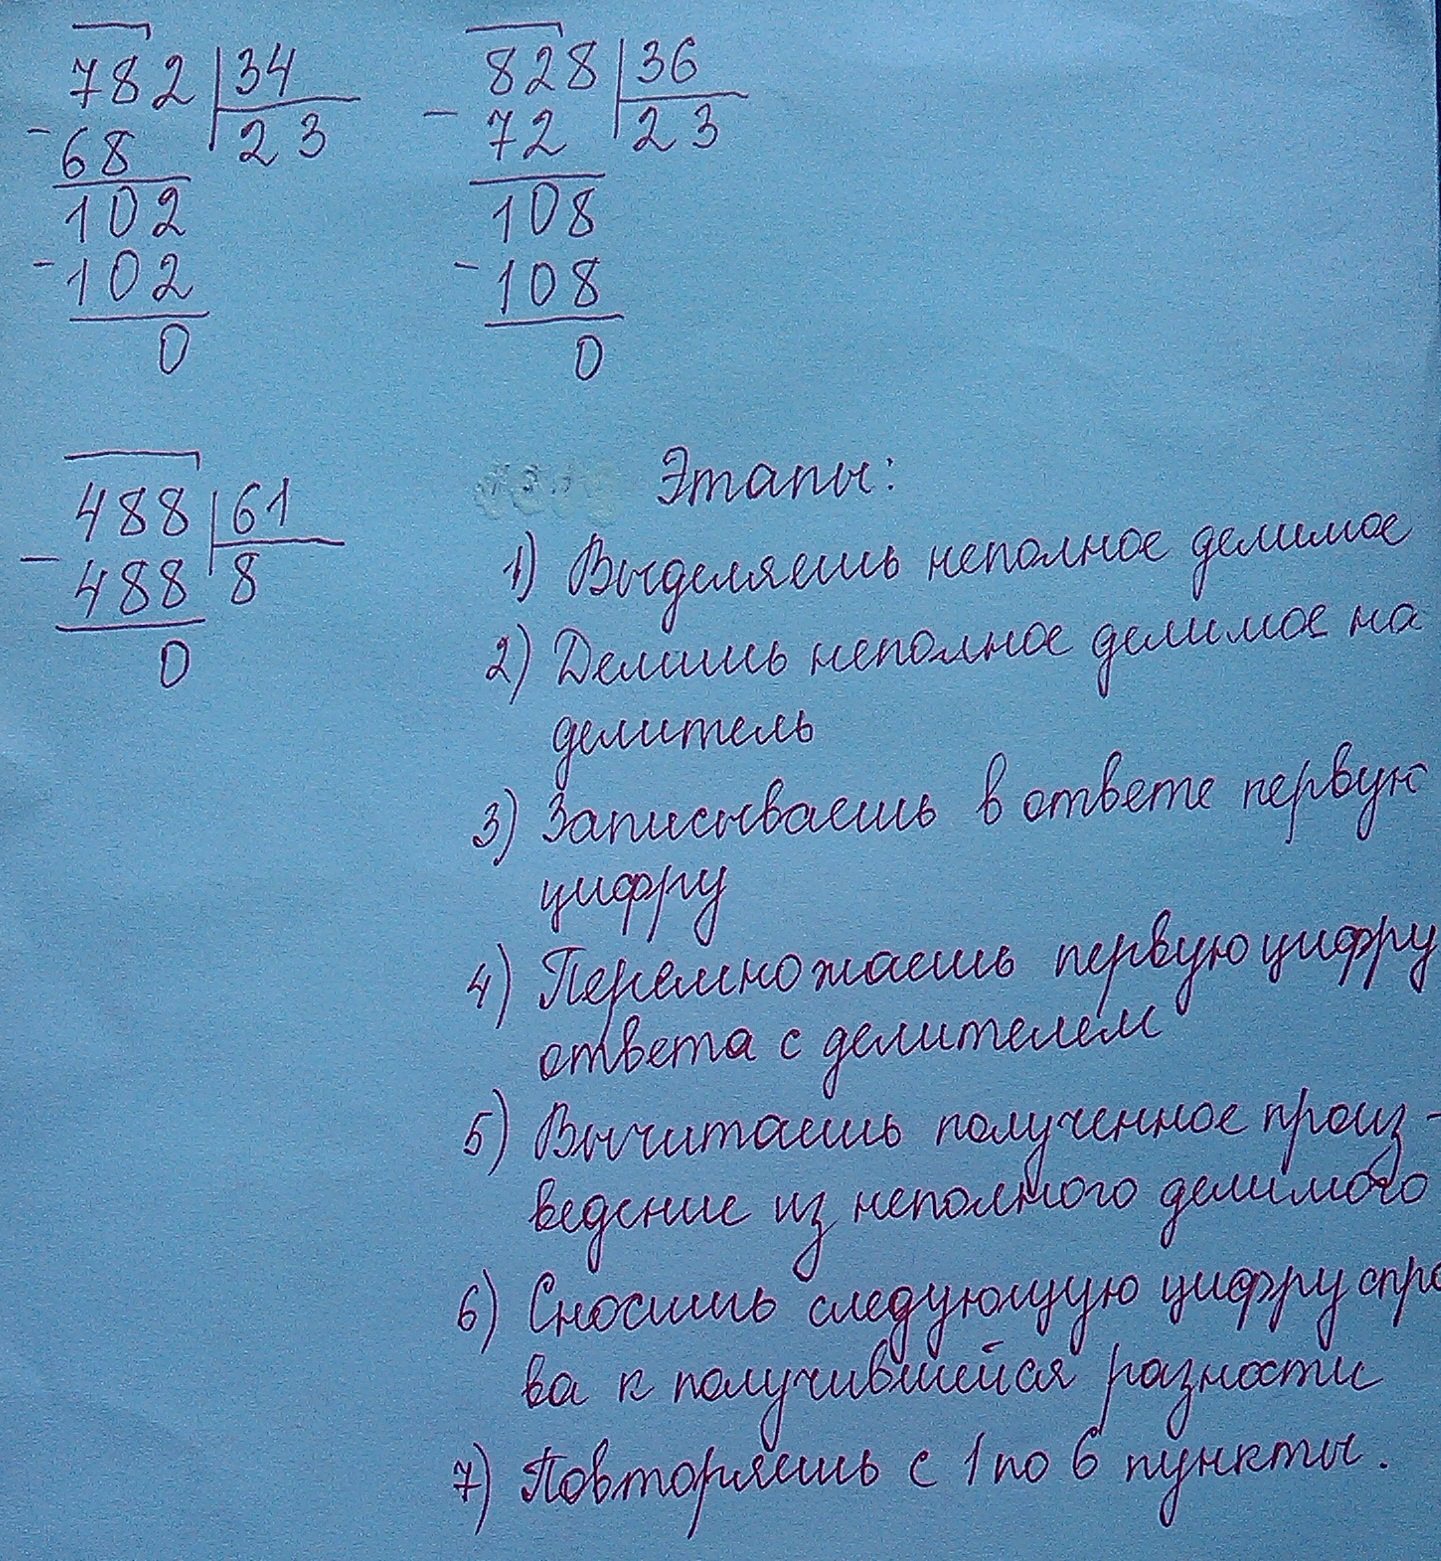 782 34
- 68 23
102
- 102
0
828 36
- 72 23
108
- 108
0
488 61
- 488 8
0
Этапы:
1) Выделяешь неполное делимое
2) Делишь неполное делимое на
делитель
3) Записываешь в ответе первую
цифру
4) Перемножаешь первую цифру
ответа с делителем
5) Вычитаешь полученное произ-
ведение из неполного делимого
6) Сносишь следующую цифру спра
ва к получившейся разности
7) Повторяешь с 1 по 6 пункты.